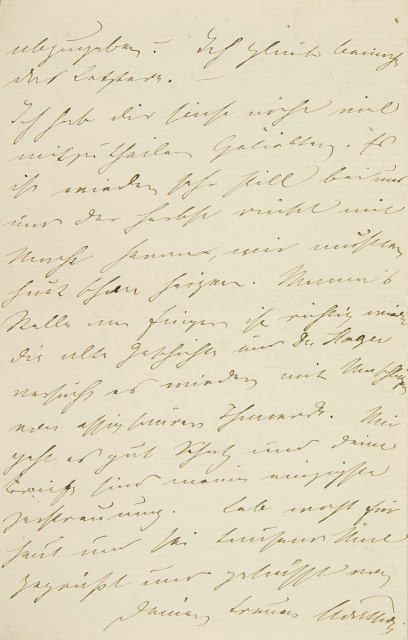 abzugeben. Ich glaube beinah
das Letztere. —
Ich hab dir sonst nicht viel
mitzutheilen Geliebter. Es
ist wieder sehr still bei uns
und der Herbst rückt mit
Macht heran, wir mußten
heut schon heizen. Mama's
Stelle am Finger ist richtig wieder
die alte Geschichte und Dr. Hager
versucht es wieder mit Umschlägen
von essigsaurer Thonerde. Mir
geht es gut Schatz und deine
Briefe sind meine einzigste
Zerstreuung. Leb wohl für
heut und sei tausend Mal
gegrüßt und geküsst von
Deiner treuen